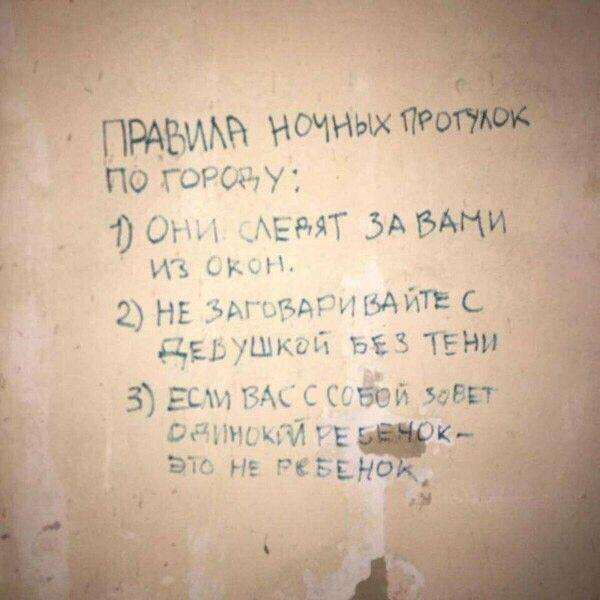 ПРАВИЛА НОЧНЫХ ПРОГУЛОК
ПО ГОРОДУ:
1) ОНИ СЛЕДЯТ ЗА ВАМИ
ИЗ ОКОН.
2) НЕ ЗАГОВАРИВАЙТЕ С
ДЕВУШКОЙ БЕЗ ТЕНИ
3) ЕСЛИ ВАС С СОБОЙ ЗОВЕТ
ОДИНОКИЙ РЕБЕНОК-
ЭТО НЕ РЕБЕНОК